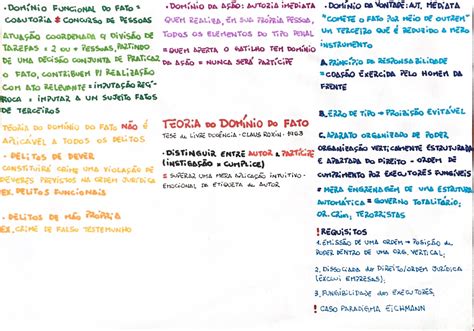 • DOMÍNIO FUNCIONAL DO FATO =
COAUTORIA ≠ CONCURSO DE PESSOAS
ATUAÇÃO COORDENADA Q DIVISÃO DE
TAREFAS × 2 OU + PESSOAS, PARTINDO
DE UMA DECISÃO CONJUNTA DE PRATICAR
O FATO, CONTRIBUEM P/ REALIZAÇÃO
COM ATO RELEVANTE = IMPUTAÇÃO RECÍ-
PROCA = IMPUTAR A UM SUJEITO FATOS
DE TERCEIROS
TEORIA DO DOMÍNIO DO FATO NÃO É
APLICÁVEL A TODOS OS DELITOS
• DELITOS DE DEVER
CONSTITUIRÁ CRIME UMA VIOLAÇÃO DE
DEVERES PREVISTOS NA ORDEM JURÍDICA
EX. DELITOS FUNCIONAIS
• DELITOS DE MÃO PRÓPRIA
EX. CRIME DE FALSO TESTEMUNHO
• DOMÍNIO DA AÇÃO: AUTORIA IMEDIATA
QUEM REALIZA, EM SUA PRÓPRIA PESSOA,
TODOS OS ELEMENTOS DO TIPO PENAL
= QUEM APERTA O GATILHO TEM DOMÍNIO
DA AÇÃO = NUNCA SERÁ PARTÍCIPE
TEORIA DO DOMÍNIO DO FATO
TESE DE LIVRE DOCÊNCIA - CLAUS ROXIN - 1963
• DISTINGUIR ENTRE AUTOR & PARTÍCIPE
(INSTIGAÇÃO = CUMPLICE)
= SUPERAR UMA MERA APLICAÇÃO INTUITIVO-
EMOCIONAL DA ETIQUETA DE AUTOR
• DOMÍNIO DA VONTADE: AUT. MEDIATA
"COMETE O FATO POR MEIO DE OUTREM"
UM TERCEIRO QUE É REDUZIDO A MERO
INSTRUMENTO
A. PRINCÍPIO DA RESPONSABILIDADE
= COAÇÃO EXERCIDA PELO HOMEM DA
FRENTE
B. ERRO DE TIPO → PROIBIÇÃO EVITÁVEL
C. APARATO ORGANIZADO DE PODER
ORGANIZAÇÃO VERTICALMENTE ESTRUTURADA
E APARTADA DO DIREITO - ORDEM DE
CUMPRIMENTO POR EXECUTORES FUNGÍVEIS
= MERA ENGRENAGEM DE UMA ESTRUTURA
AUTOMÁTICA = GOVERNO TOTALITÁRIO;
OR. CRIM; TERRORISTAS
! REQUISITOS
1. EMISSÃO DE UMA ORDEM → POSIÇÃO DE
PODER DENTRO DE UMA ORG. VERTICAL;
2. DISSOCIADA DO DIREITO/ORDEM JURÍDICA
(EXCLUI EMPRESAS);
3. FUNGIBILIDADE DOS EXECUTORES;
! CASO PARADIGMA EICHMANN